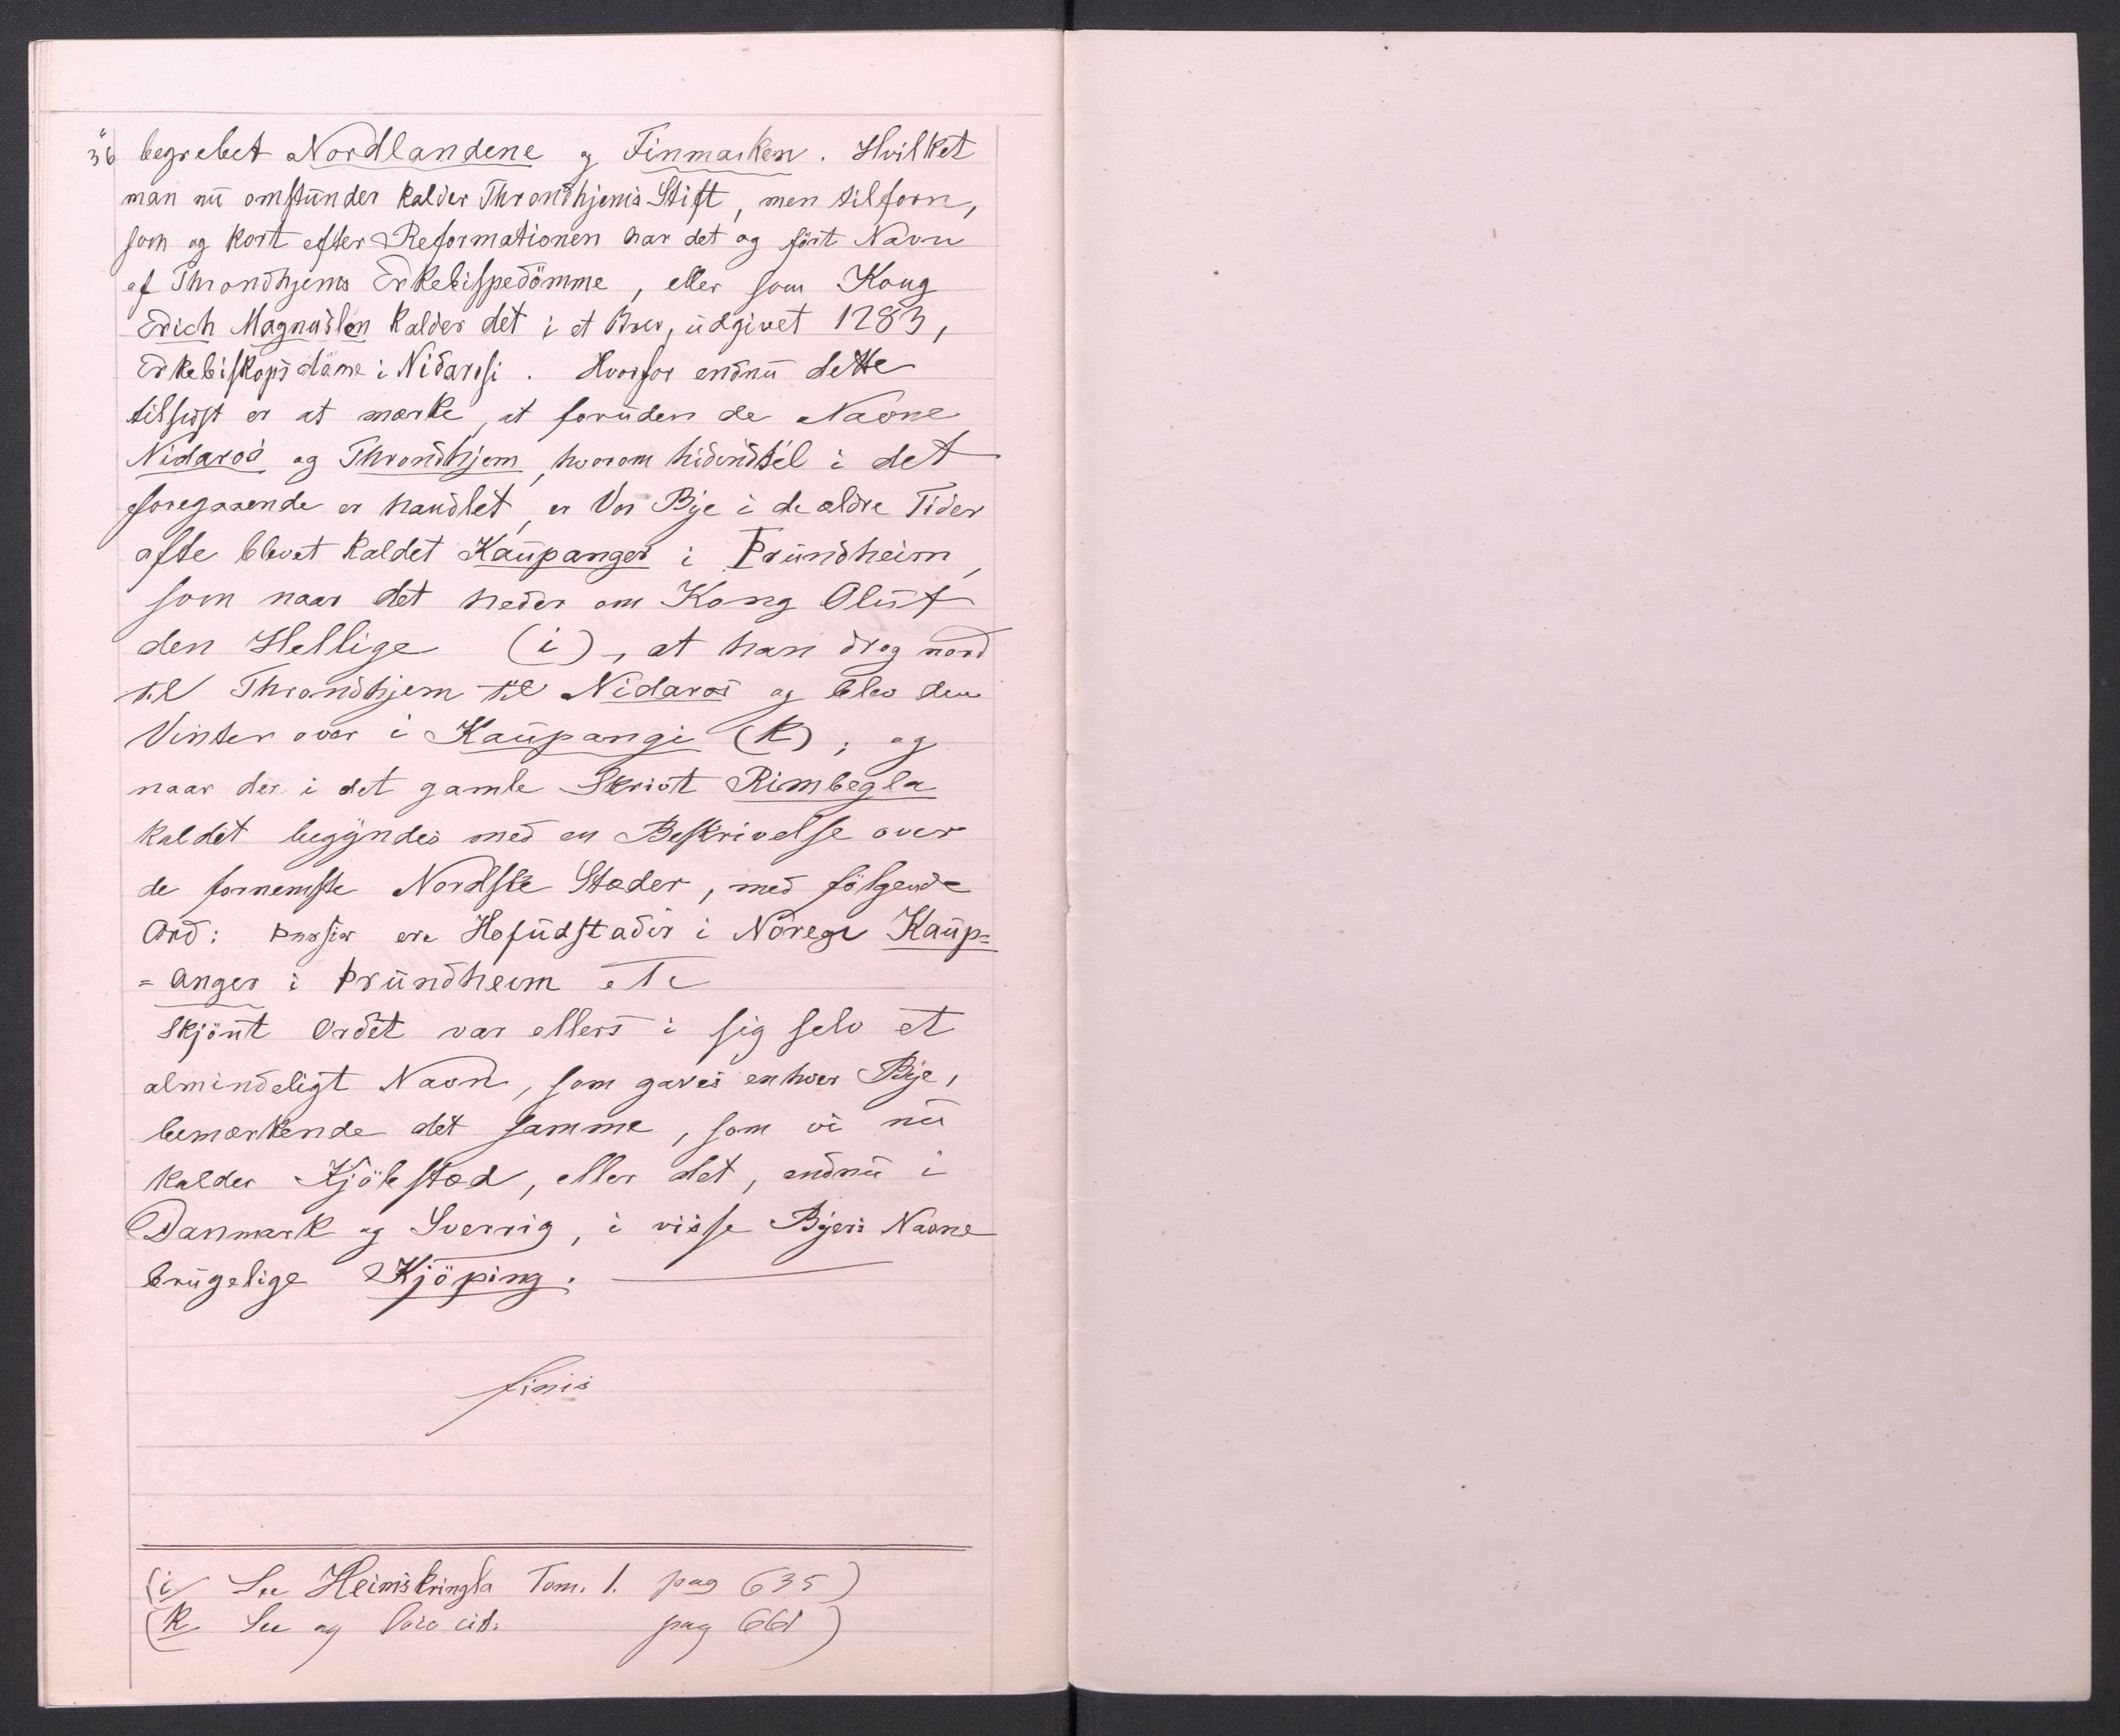 36 begrebet Nordlandene og Finmarken. Hvilket
man nu omstunder kalder Throndhjems Stift, men tilforn,
som og kort efter Reformationen har det og ført Navn
af Throndhjems Erkebispedömme, eller som Kong
Erich Magnussön kalder det i et Brev, udgivet 1283,
Erkebiskopsdäme i Nidarosi. Hvorfor endnu dette
tilsidst er at mærke, at foruden de Navne
Nidaros og Throndhjem, hvorom hidindtil i det
foregaaende er handlet, er Vor Bye i de ældre Tider
ofte blevet kaldet Kaupanger i Þrundheim,
som naar det heder om Kong Oluf
den Hellige (i), at han drog nord
til Throndhjem til Nidaros og blev den
Vinter over i Kaupangi (k); og
naar der i det gamle Skrivt Rimbegla
kaldet begyndes med en Beskrivelse over
de fornemste Nordske Stæder, med følgende
Ord: Þessir ero Hofudstadir i Noregi Kaup=
=anger i Þrundheim etc
Skjönt Ordet var ellers i sig selv et
almindeligt Navn, som gaves enhver Bye,
bemærkende det samme, som vi nu
kalder Kjöbstæd, eller det, endnu i
Danmark og Sverrig, i visse Byers Navne
brugelige Kjöping.
finis
(i See Heimskringla Tom. 1. pag 635)
(k See og loco cit. pag 661)